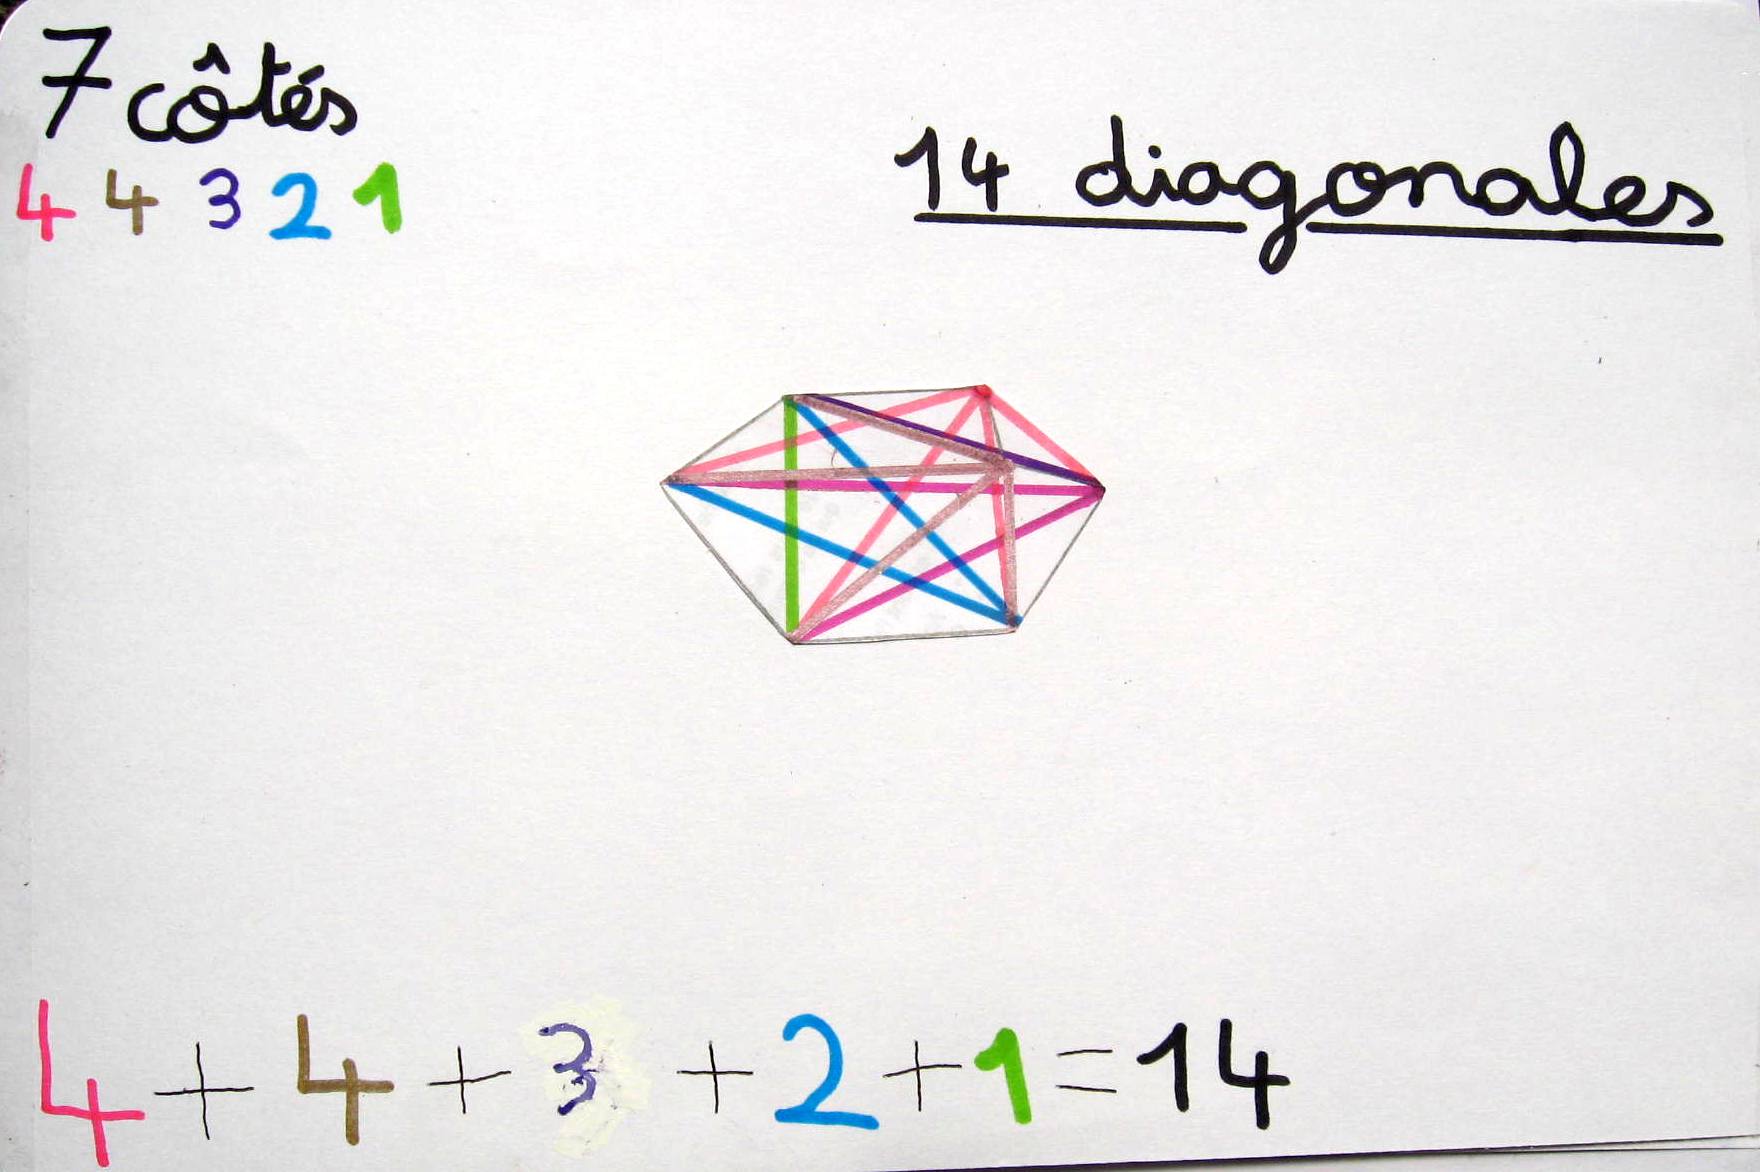 7 côtés
4 4 3 2 1
14 diagonales
4 + 4 + 3 + 2 + 1 = 14